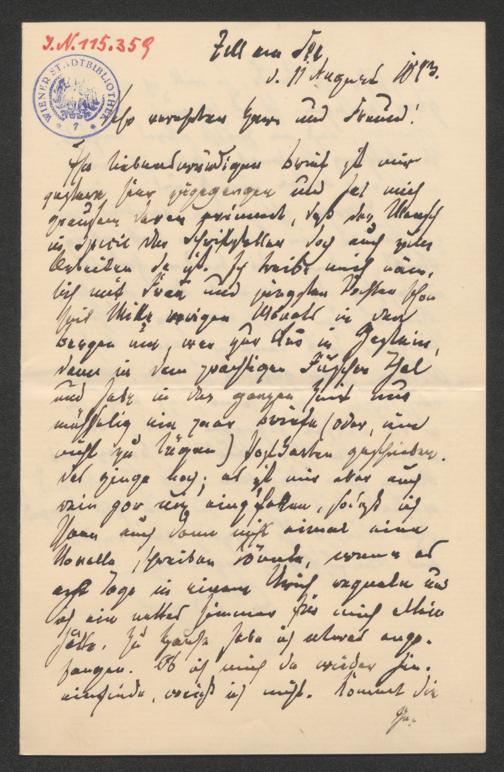 J.N. 115.359
WIENER STADTBIBLIOTHEK
7
Zell am See
d. 11 August 1893.
verehrter Herr und Freund!
Ihr liebenswürdiger Brief ist mir
gestern hier zugegangen und hat mich
daran erinnert, daß der Mensch
in der Schriftsteller doch auch zum
Arbeiten da ist. Ich treibe mich näm-
lich mit Frau und jüngsten Tochter schon
seit Mitte vorigen Monats in den
Bergen um, war zur Cur in Gastein,
dann in dem prächtigen Fuscher Thal
und habe in der ganzen Zeit nur
mühselig ein paar Briefe (oder, um
nicht zu lügen) Postkarten geschrieben.
Das ginge noch; es ist mir aber auch
rein gar nichts eingefallen, so daß ich
auch dann nicht einmal eine
Novelle schreiben könnte, wenn es
acht Tage in einem Strich regnete und
ich ein nettes Zimmer für mich allein
hätte. Zu Hause habe ich etwas ange-
fangen. Ob ich mich da wieder hin-
einfinde, weiß ich nicht. Kommt die